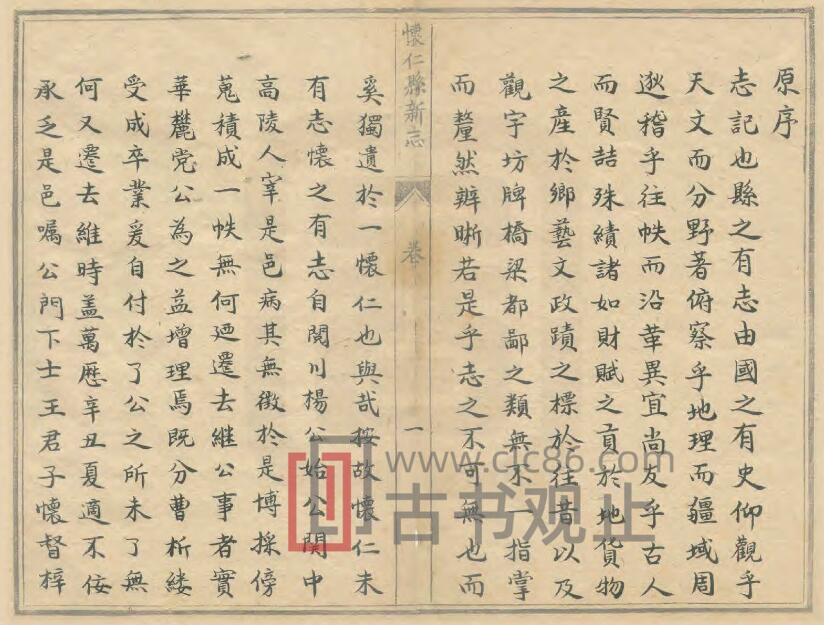 原序
志記也縣之有志由國之有史仰觀乎
天文而分野著俯察乎地理而疆域周
逖稽乎往帙而沿革異宜尚友乎古人
而賢喆殊績諸如財賦之貢於地貨物
之產於鄉藝文政蹟之標於往昔以及
觀宇坊牌橋梁都鄙之類無不一指掌
而釐然辨晰若是乎志之不可無也而
懷仁縣新志
卷
一
奚獨遺於一懷仁也與哉按故懷仁未
有志懷之有志自関川楊公始公関中
高陵人宰是邑病其無徵於是博採傍
蒐積成一帙無何廼遷去継公事者實
華麓党公為之益增理焉既分曹析縷
受成卒業爰自付於了公之所未了無
何又遷去維時盖萬歷辛丑夏適不佞
承乏是邑嘱公門下士王君子懷督梓
www.cjc86.com
古书观止